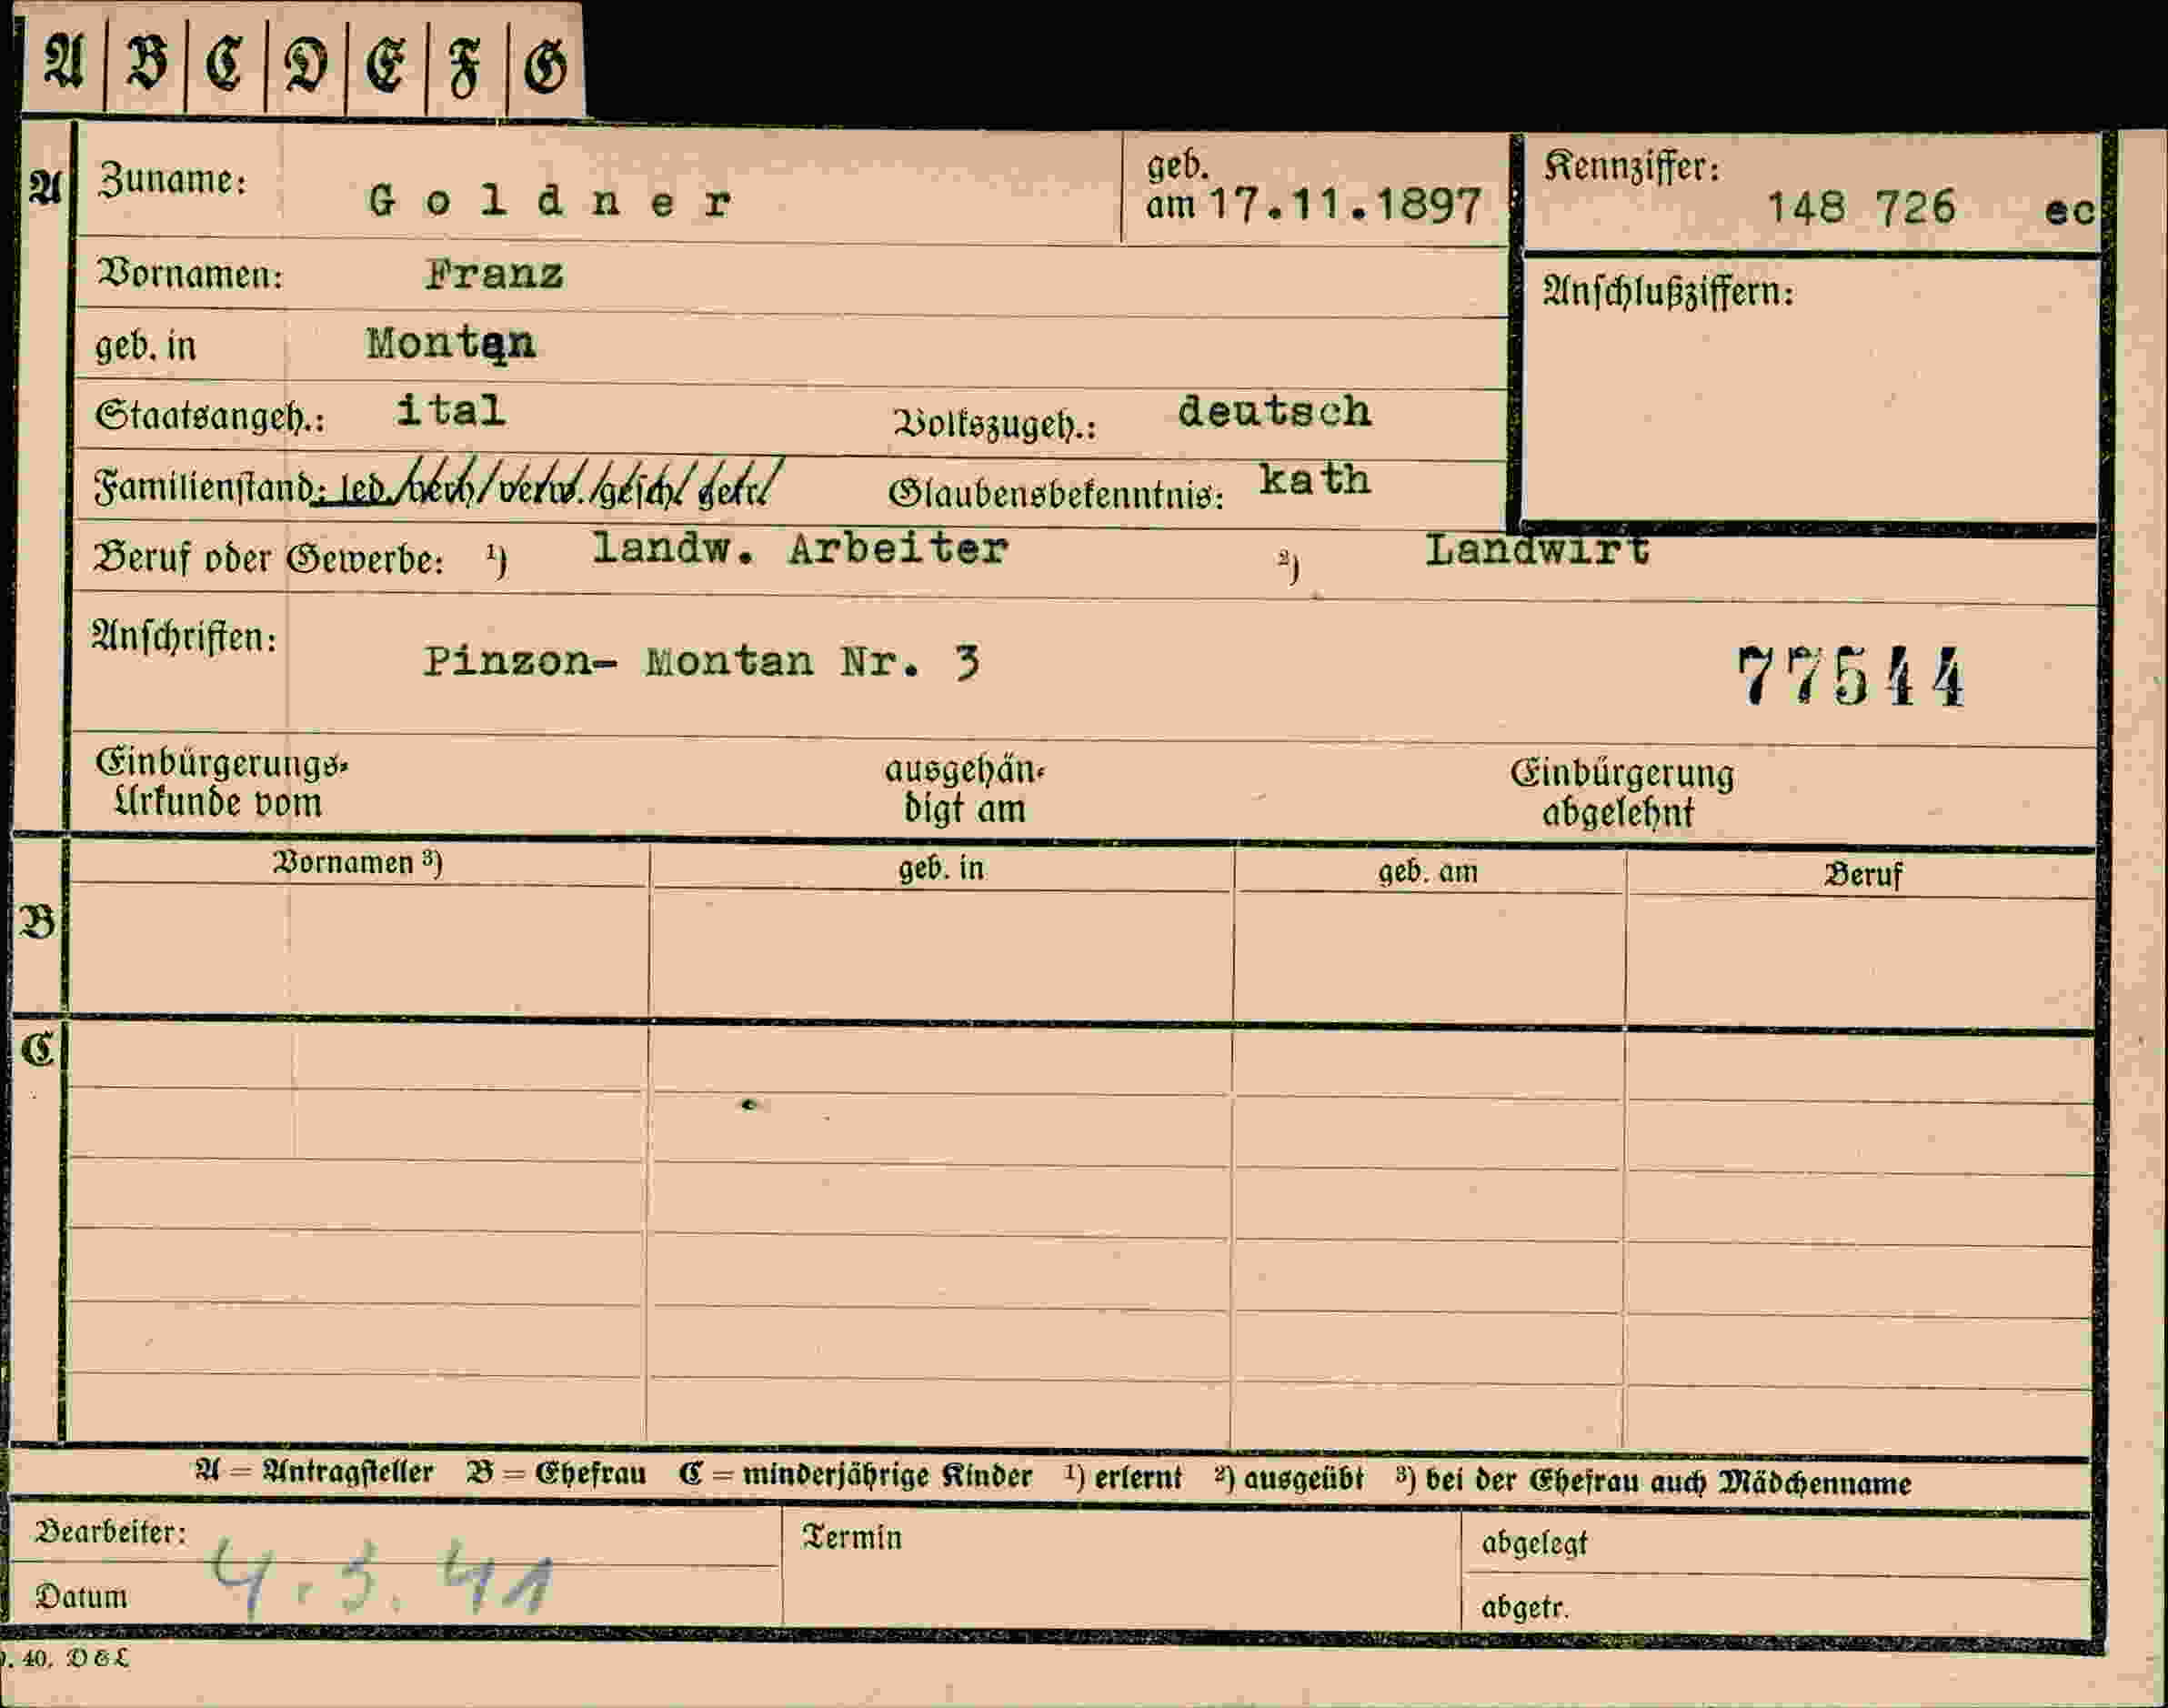 A B C D E F G
A
Zuname: Goldner geb. am 17.11.1897 Kennziffer: 148 726 ec
Vornamen: Franz
Anschlußziffern:
geb. in Montan
Staatsangeh.: ital Volkszugeh.: deutsch
Familienstand: led./verh/verw./gesch/getr/ Glaubensbekenntnis: kath
Beruf oder Gewerbe: ¹) landw. Arbeiter ²) Landwirt
Anschriften: Pinzon- Montan Nr. 3 77544
Einbürgerungs-
Urkunde vom
ausgehän-
digt am
Einbürgerung
abgelehnt
Vornamen ³) geb. in geb. am Beruf
B
C
A = Antragsteller B = Ehefrau C = minderjährige Kinder ¹) erlernt ²) ausgeübt ³) bei der Ehefrau auch Mädchenname
Bearbeiter: Termin abgelegt
Datum 4.3.41 abgetr.
40. D & L